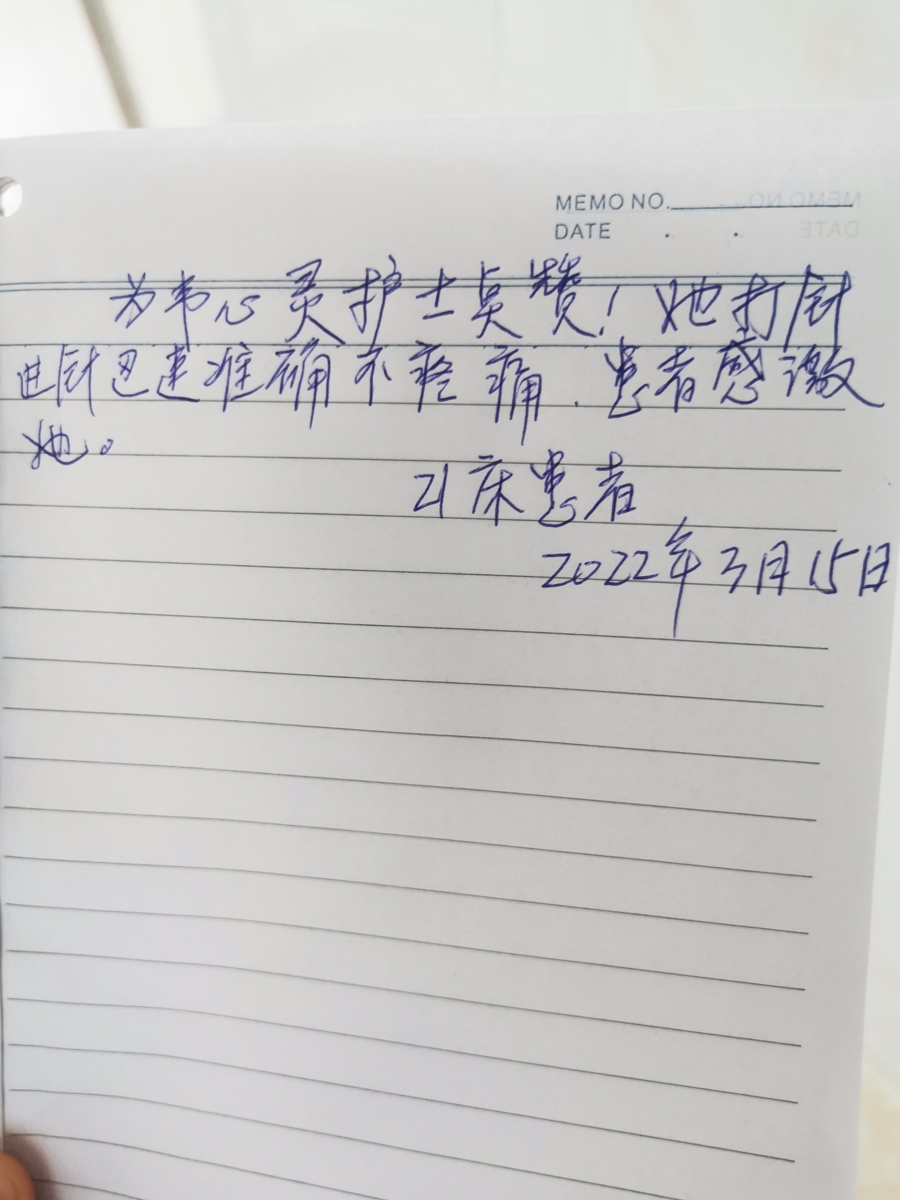 MEMO NO.
DATE . .
为韦心灵护士点赞！她打针
进针迅速准确不疼痛.患者感激
她。
21床患者
2022年3月15日